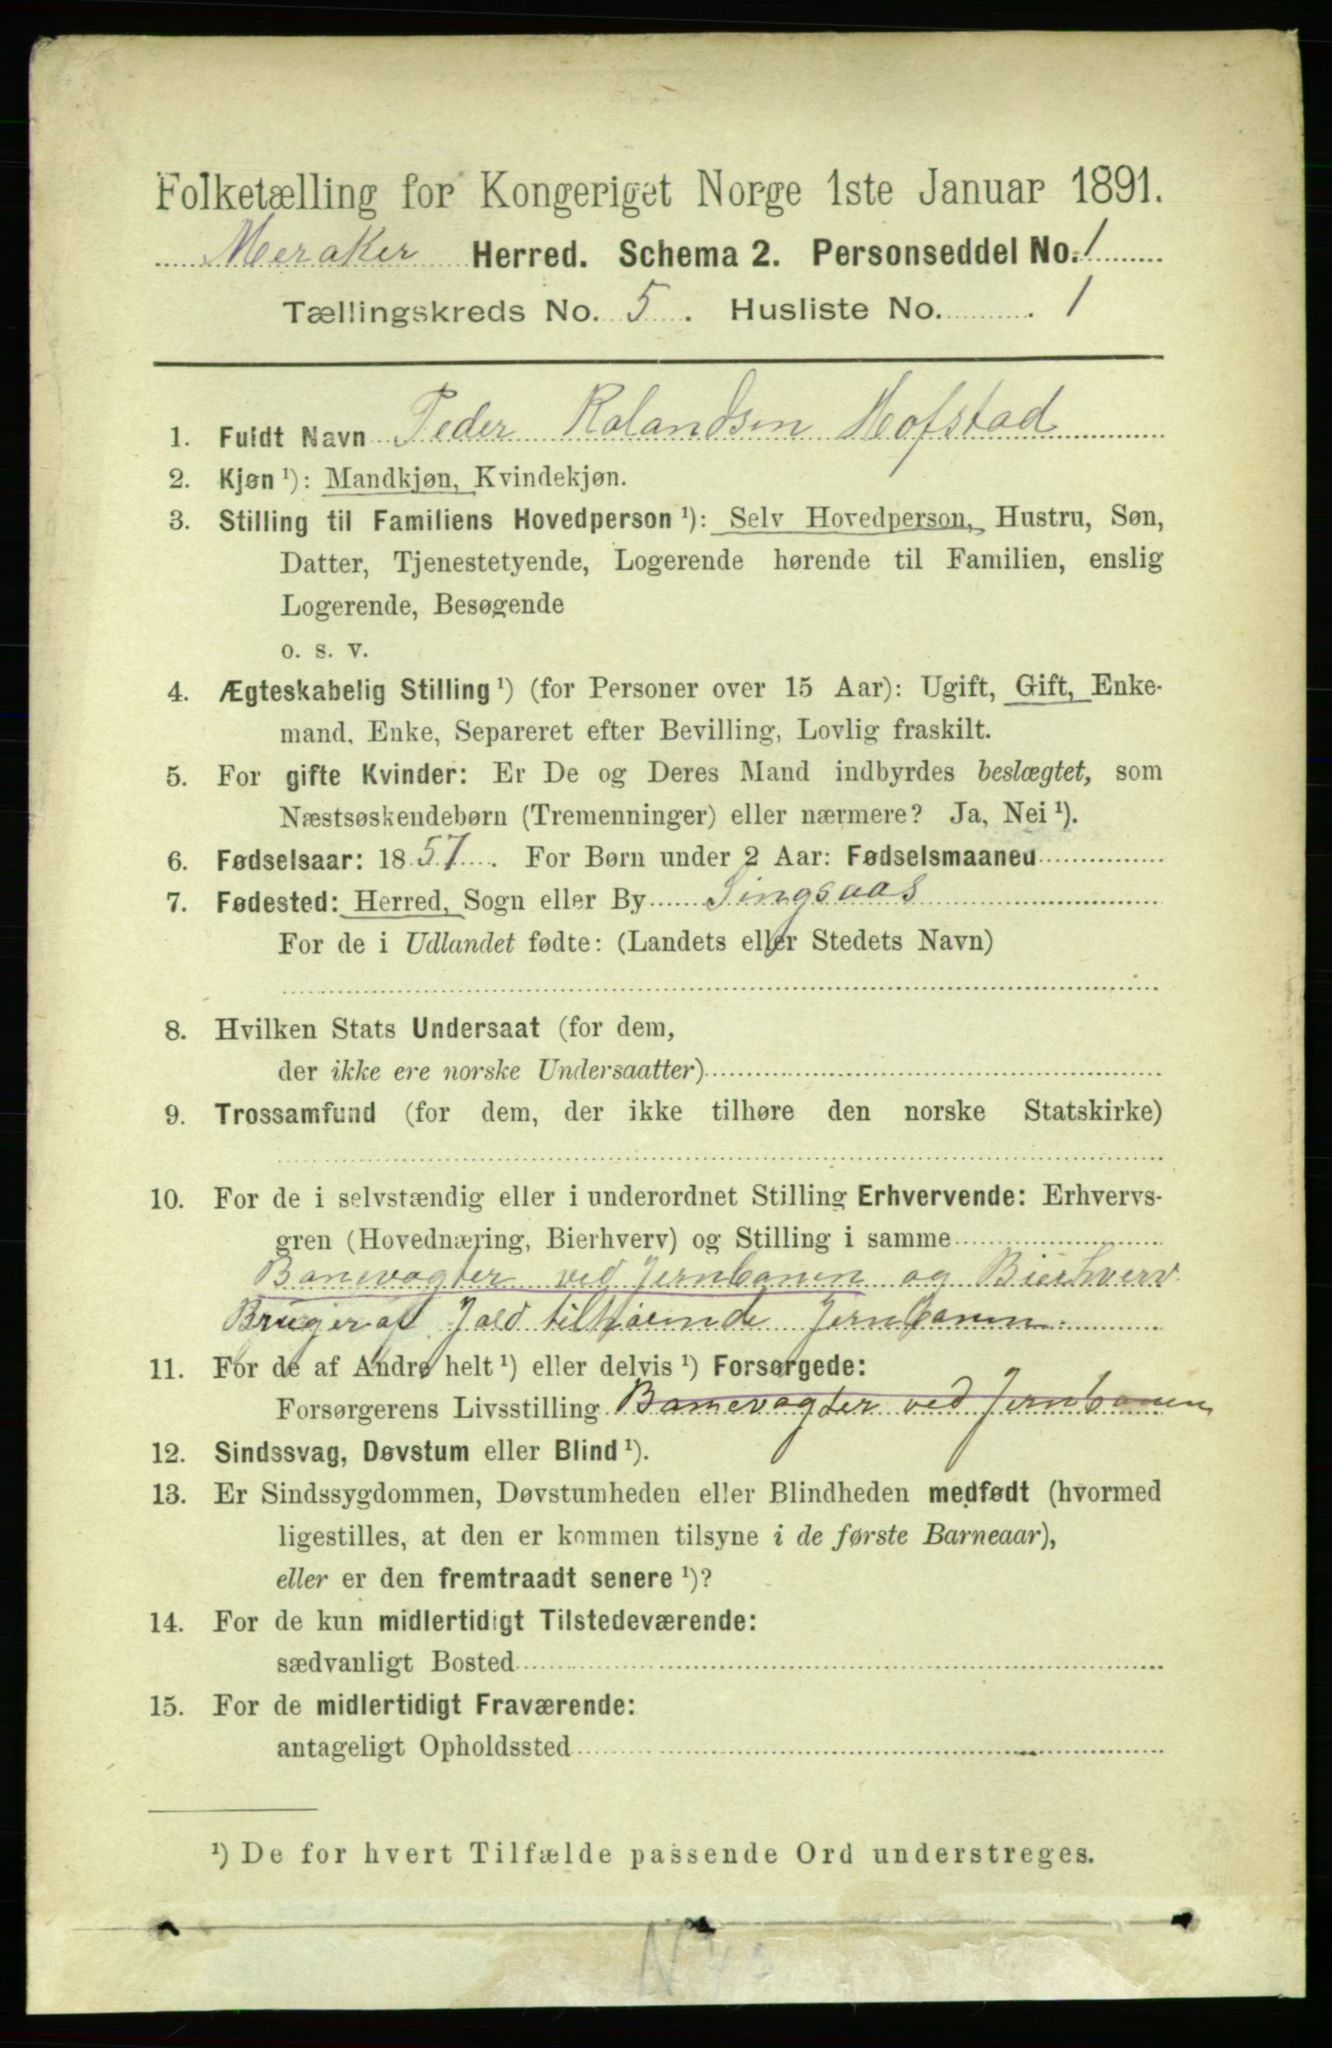 Folketælling for Kongeriget Norge 1ste Januar 1891.
Meraker Herred. Schema 2. Personseddel No. 1
Tællingskreds No. 5. Husliste No. 1
1. Fuldt Navn Peder Rolandsen Hofstad
2. Kjøn ¹): Mandkjøn, Kvindekjøn.
3. Stilling til Familiens Hovedperson ¹): Selv Hovedperson, Hustru, Søn,
Datter, Tjenestetyende, Logerende hørende til Familien, enslig
Logerende, Besøgende
o. s. v.
4. Ægteskabelig Stilling ¹) (for Personer over 15 Aar): Ugift, Gift, Enke-
mand, Enke, Separeret efter Bevilling, Lovlig fraskilt.
5. For gifte Kvinder: Er De og Deres Mand indbyrdes beslægtet, som
Næstsøskendebørn (Tremenninger) eller nærmere? Ja, Nei ¹).
6. Fødselsaar: 1857. For Børn under 2 Aar: Fødselsmaaned
7. Fødested: Herred, Sogn eller By Singsaas
For de i Udlandet fødte: (Landets eller Stedets Navn)
8. Hvilken Stats Undersaat (for dem,
der ikke ere norske Undersaatter)
9. Trossamfund (for dem, der ikke tilhøre den norske Statskirke)
10. For de i selvstændig eller i underordnet Stilling Erhvervende: Erhvervs-
gren (Hovednæring, Bierhverv) og Stilling i samme
Banevogter ved Jernbanen og Bierhverv
Bruger af Jord tilhørende Jernbanen
11. For de af Andre helt ¹) eller delvis ¹) Forsørgede:
Forsørgerens Livsstilling Banevogter ved Jernbanen
12. Sindssvag, Døvstum eller Blind ¹).
13. Er Sindssygdommen, Døvstumheden eller Blindheden medfødt (hvormed
ligestilles, at den er kommen tilsyne i de første Barneaar),
eller er den fremtraadt senere ¹)?
14. For de kun midlertidigt Tilstedeværende:
sædvanligt Bosted
15. For de midlertidigt Fraværende:
antageligt Opholdssted
¹) De for hvert Tilfælde passende Ord understreges.